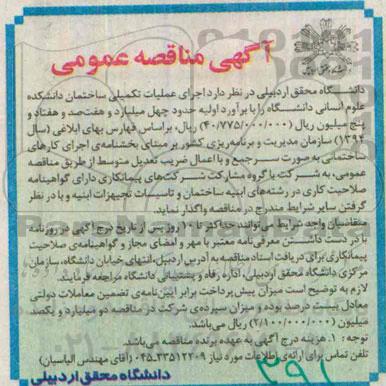 آگهی مناقصه عمومی
دانشگاه محقق اردبیلی در نظر دارد اجرای عملیات تکمیلی ساختمان دانشکده
علوم انسانی دانشگاه را با برآورد اولیه حدود چهل میلیارد و هفت‌صد و هفتاد و
پنج میلیون ریال (۴۰/۷۷۵/۰۰۰/۰۰۰) ریال، براساس فهارس بهای ابلاغی (سال
۱۳۹۴) سازمان مدیریت و برنامه‌ریزی کشور بر مبنای بخشنامه‌ی اجرای کارهای
ساختمانی به صورت سرجمع و با اعمال ضریب تعدیل متوسط از طریق مناقصه
عمومی، به شرکت یا گروه مشارکت شرکت‌های پیمانکاری دارای گواهینامه
صلاحیت کاری در رشته‌های ابنیه ساختمان و تاسیسات تجهیزات ابنیه و با در نظر
گرفتن سایر شرایط مندرج در مناقصه واگذار نماید.
متقاضیان واجد شرایط می توانند حداکثر تا ۱۰ روز پس از تاریخ درج آگهی در روزنامه
با در دست داشتن معرفی‌نامه معتبر با مهر و امضای مجاز و گواهینامه‌ی صلاحیت
پیمانکاری برای دریافت اسناد مناقصه به آدرس اردبیل، انتهای خیابان دانشگاه، سازمان
مرکزی دانشگاه محقق اردبیلی، اداره رفاه و پشتیبانی دانشگاه مراجعه فرمایند.
لازم به توضیح است میزان پیش‌پرداخت برابر آیین‌نامه‌ی تضمین معاملات دولتی
معادل بیست درصد بوده و میزان سپرده‌ی شرکت در مناقصه دو میلیارد و یکصد
میلیون (۲/۱۰۰/۰۰۰/۰۰۰) ریال می‌باشد.
توجه : ۱. هزینه درج آگهی به عهده برنده مناقصه می‌باشد.
تلفن تماس برای ارائه‌ی اطلاعات مورد نیاز ۳۳۵۱۲۲۰۹-۰۴۵ (آقای مهندس الیاسیان)
دانشگاه محقق اردبیلی